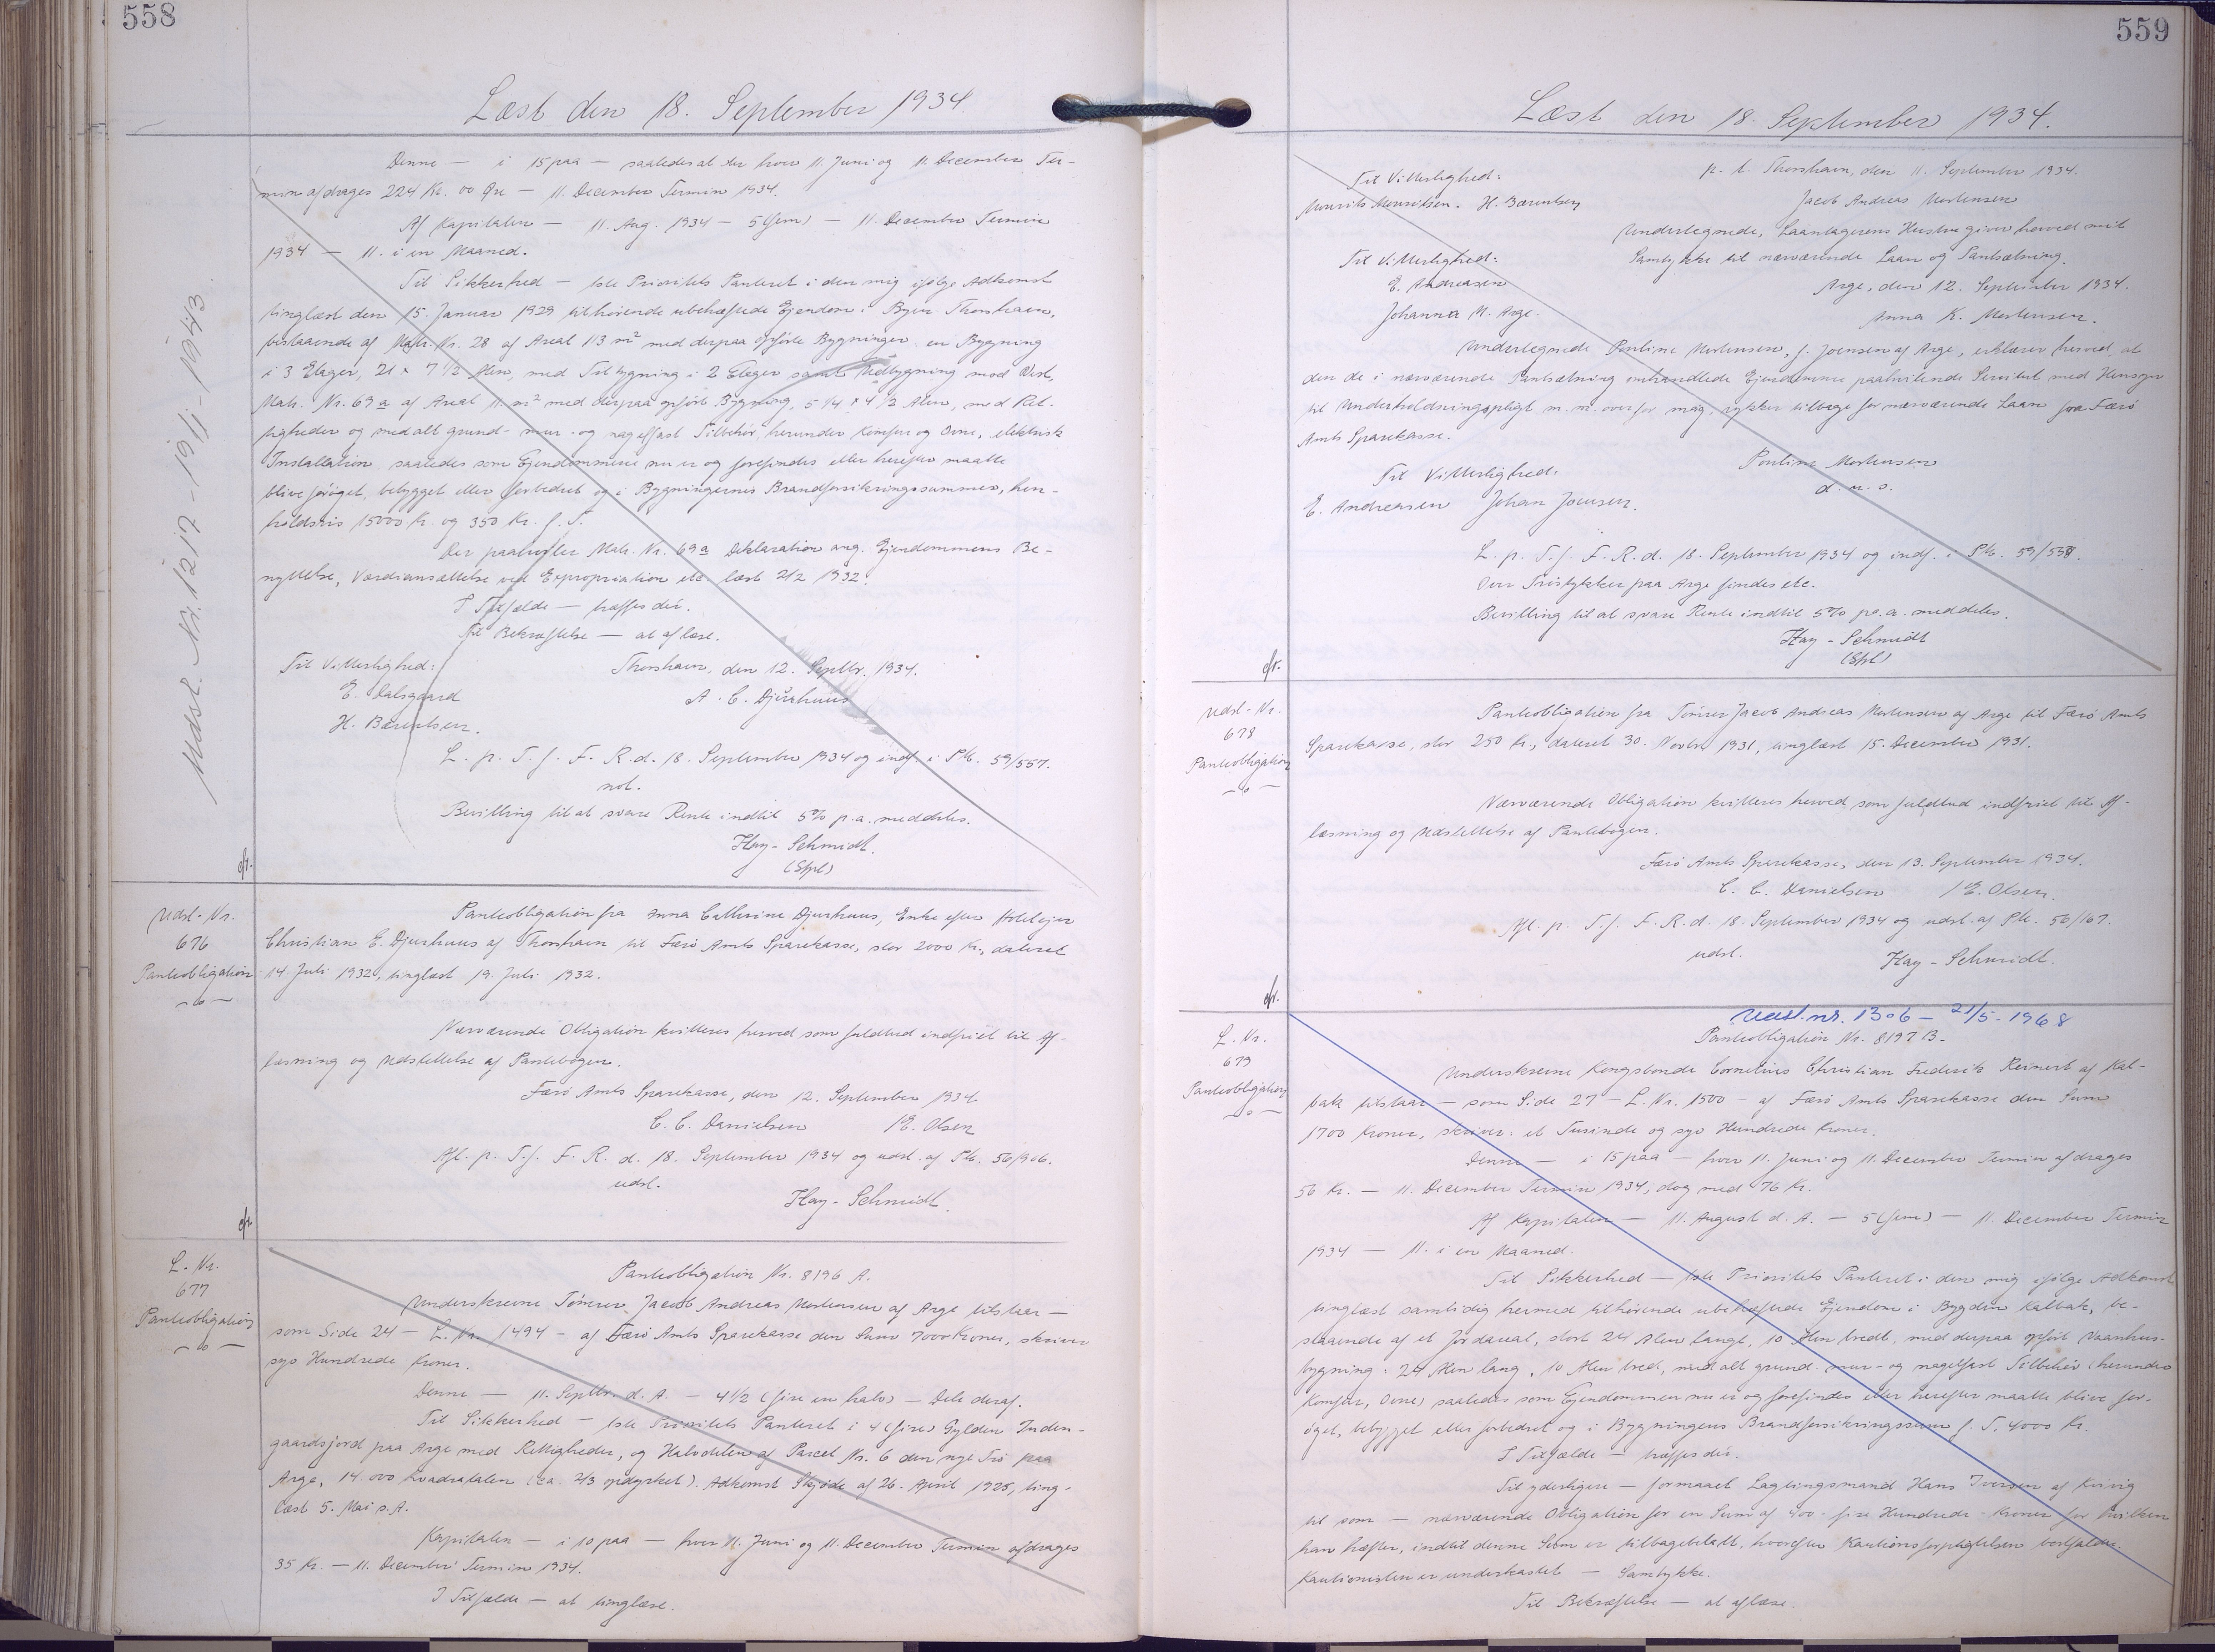 558
Læst den 18. September 1934.
Denne — i 15 paa — saaledes at der hver 11. Juni og 11. December Ter-
min afdrages 224 Kr. 00 Øre — 11. December Termin 1934.
Af Kapitalen — 11. Aug. 1934 — 5 (fem) — 11. December Termin
1934 — 11. i en Maaned.
Til Sikkerhed — 1ste Prioritets Panteret i den mig ifølge Adkomst
tinglæst den 15. Januar 1929 tilhørende ubehæftede Ejendom i Byen Thorshavn,
bestaaende af Matr. Nr. 28 af Areal 113 m² med derpaa opførte Bygninger: en Bygning
i 3 Etager, 21 x 7 1/2 Alen, med Tilbygning i 2 Etager samt Udbygning mod Vest,
Matr. Nr. 69 a af Areal 11 m² med derpaa opført Bygning, 5 1/4 x 4 1/2 Alen, med Ret-
tigheder og med alt grund- mur- og nagelfast Tilbehør, herunder Komfur og Ovne, elektrisk
Installation, saaledes som Ejendommene nu er og forefindes eller herefter maatte
blive forøget, bebygget eller forbedret og i Bygningernes Brandforsikringssummer, hen-
holdsvis 15000 Kr. og 350 Kr. f. T.
Der paahviler Matr. Nr. 69 a Deklaration ang. Ejendommens Be-
nyttelse, Værdiansættelse ved Expropriation etc. læst 2/2 1932.
I Tilfælde — træffes dér.
Til Bekræftelse — at aflæse.
Til Vitterlighed:
Thorshavn, den 12. Septbr. 1934.
E. Dalsgaard
A. C. Djurhuus
H. Bærentsen.
L. p. T. f. F. R. d. 18. September 1934 og indf. i Pb. 59/557.
not.
Bevilling til at svare Rente indtil 5% p.a. meddeles.
Hay-Schmidt.
(Stpl)
cfr.
Udsl. Nr. 1217 - 19/1 - 1943.
Udsl-Nr.
676
Panteobligation
Panteobligation fra Anna Cathrine Djurhuus, Enke efter Hotelejer
Christian E. Djurhuus af Thorshavn til Færø Amts Sparekasse, stor 2000 Kr., dateret
14. Juli 1932, tinglæst 19. Juli 1932.
Nærværende Obligation kvitteres herved som fuldtud indfriet til Af-
læsning og Udslettelse af Pantebogen.
Færø Amts Sparekasse, den 12. September 1934.
C. C. Danielsen / E. Olsen
Afl. p. T. f. F. R. d. 18. September 1934 og udsl. af Pb. 56/906.
udsl.
Hay-Schmidt.
cfr.
L. Nr.
677
Panteobligation
Panteobligation Nr. 8196 A.
Underskrevne Tømrer Jacob Andreas Mortensen af Arge tilstaar —
som Side 24 — L. Nr. 1494 — af Færø Amts Sparekasse den Sum 700 Kroner, skriver
syv Hundrede Kroner.
Denne — 11. Septbr. d. A. — 4 1/2 (fire en halv) — Dele deraf.
Til Sikkerhed — 1ste Prioritets Panteret i 4 (fire) Gylden Inden-
gaardsjord paa Arge med Rettigheder, og Halvdelen af Parcel Nr. 6 den nye Trø paa
Arge, 14.000 Kvadratalen (ca. 2/3 opdyrket). Adkomst Skjøde af 26. April 1925, ting-
læst 5. Mai s. A.
Kapitalen — i 10 paa — hver 11. Juni og 11. December Termin afdrages
35 Kr. — 11. December Termin 1934.
I Tilfælde — at tinglæse.
559
Læst den 18. September 1934.
Til Vitterlighed:
p. t. Thorshavn, den 11. September 1934.
Mourits Mouritsen. H. Bærentsen
Jacob Andreas Mortensen
Undertegnede, Laantagerens Hustru giver herved mit
Til Vitterlighed:
Samtykke til nærværende Laan og Pantsætning.
E. Andreasen
Arge, den 12. September 1934.
Johanna M. Arge.
Anna K. Mortensen.
Undertegnede Pouline Mortensen, f. Joensen af Arge, erklærer herved, at
den de i nærværende Pantsætning omhandlede Ejendomme paahvilende Servitut med Hensyn
til Underholdningspligt m. v. overfor mig, rykker tilbage for nærværende Laan fra Færø
Amts Sparekasse.
Til Vitterlighed:
Pouline Mortensen
m. f. P.
E. Andreasen Johan Joensen.
L. p. T. f. F. R. d. 18. September 1934 og indf. i Pb. 59/558.
Over Tristykker paa Arge findes etc.
Bevilling til at svare Rente indtil 5% p.a. meddeles.
Hay-Schmidt
(Stpl)
cfr.
Udsl-Nr.
678
Panteobligation
Panteobligation fra Tømrer Jacob Andreas Mortensen af Arge til Færø Amts
Sparekasse, stor 250 Kr., dateret 30. Novbr. 1931, tinglæst 15. December 1931.
Nærværende Obligation kvitteres herved som fuldtud indfriet til Af-
læsning og Udslettelse af Pantebogen.
Færø Amts Sparekasse, den 13. September 1934.
C. C. Danielsen / E. Olsen.
Afl. p. T. f. F. R. d. 18. September 1934 og udsl. af Pb. 56/167.
udsl.
Hay-Schmidt.
cfr.
Udsl. nr. 1306 — 21/5. 1968
L. Nr.
679
Panteobligation
Panteobligation Nr. 8197 B.
Underskrevne Kongsbonde Cornelius Christian Frederik Reinert af Kal-
bak tilstaar — som Side 27 — L. Nr. 1500 — af Færø Amts Sparekasse den Sum
1700 Kroner, skriver: et Tusinde og syv Hundrede Kroner.
Denne — i 15 paa — hver 11. Juni og 11. December Termin afdrages
56 Kr. — 11. December Termin 1934, dog med 76 Kr.
Af Kapitalen — 11. August d. A. — 5 (fem) — 11. December Termin
1934 — 11. i en Maaned.
Til Sikkerhed — 1ste Prioritets Panteret i den mig ifølge Adkomst
tinglæst samtidig hermed tilhørende ubehæftede Ejendom i Bygden Kalbak, be-
staaende af et Jordareal, stort 24 Alen langt, 10 Alen bredt, med derpaa opført Vaanhus-
bygning: 24 Alen lang, 10 Alen bred, med alt grund- mur- og nagelfast Tilbehør (herunder
Komfur, Ovne) saaledes som Ejendommen nu er og forefindes eller herefter maatte blive for-
øget, bebygget eller forbedret og i Bygningens Brandforsikringssum f. T. 4000 Kr.
I Tilfælde — træffes dér.
Til yderligere — formaaet Lagtingsmand Hans Iversen af Kvivig
til som — nærværende Obligation for en Sum af 400 - fire Hundrede - Kroner for hvilken
han hæfter, indtil denne Sum er tilbagebetalt, hvorefter Kautionsforpligtelsen bortfalder.
Kautionisten er underkastet — Samtykke.
Til Bekræftelse — at aflæse.